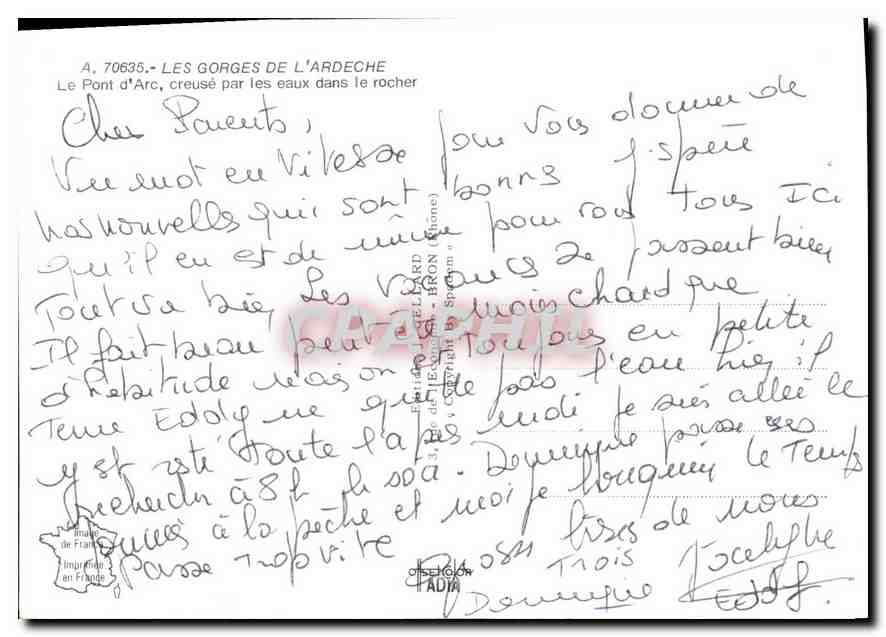 A. 70635.- LES GORGES DE L'ARDECHE
Le Pont d'Arc, creusé par les eaux dans le rocher
Cher Parents,
Un mot en vitesse pour vous donner de
nos nouvelles qui sont bonnes j'espère
qu'il en est de même pour vous Tous Ici
Tout va bien Les vacances se passent bien
Il fait beau peut-être moins chaud que
d'habitude mais on est Toujours en petite
Tenue Eddy ne quitte pas l'eau hier il
y est resté toute l'après midi je suis allée le
rechercher à 8h le soir. Dominique passe ses
journées à la pêche et moi je bouquine Le Temps
Passe Trop vite
Gros Bises de nous
Trois
Dominique Jocelyne
Eddy.
Editions J. CELLARD
3, rue de l'Economie - BRON (Rhône)
« Copyright by Spadem »
CPAPHIL
Image
de France
Imprimée
en France
OFSETCOLOR
ADIA